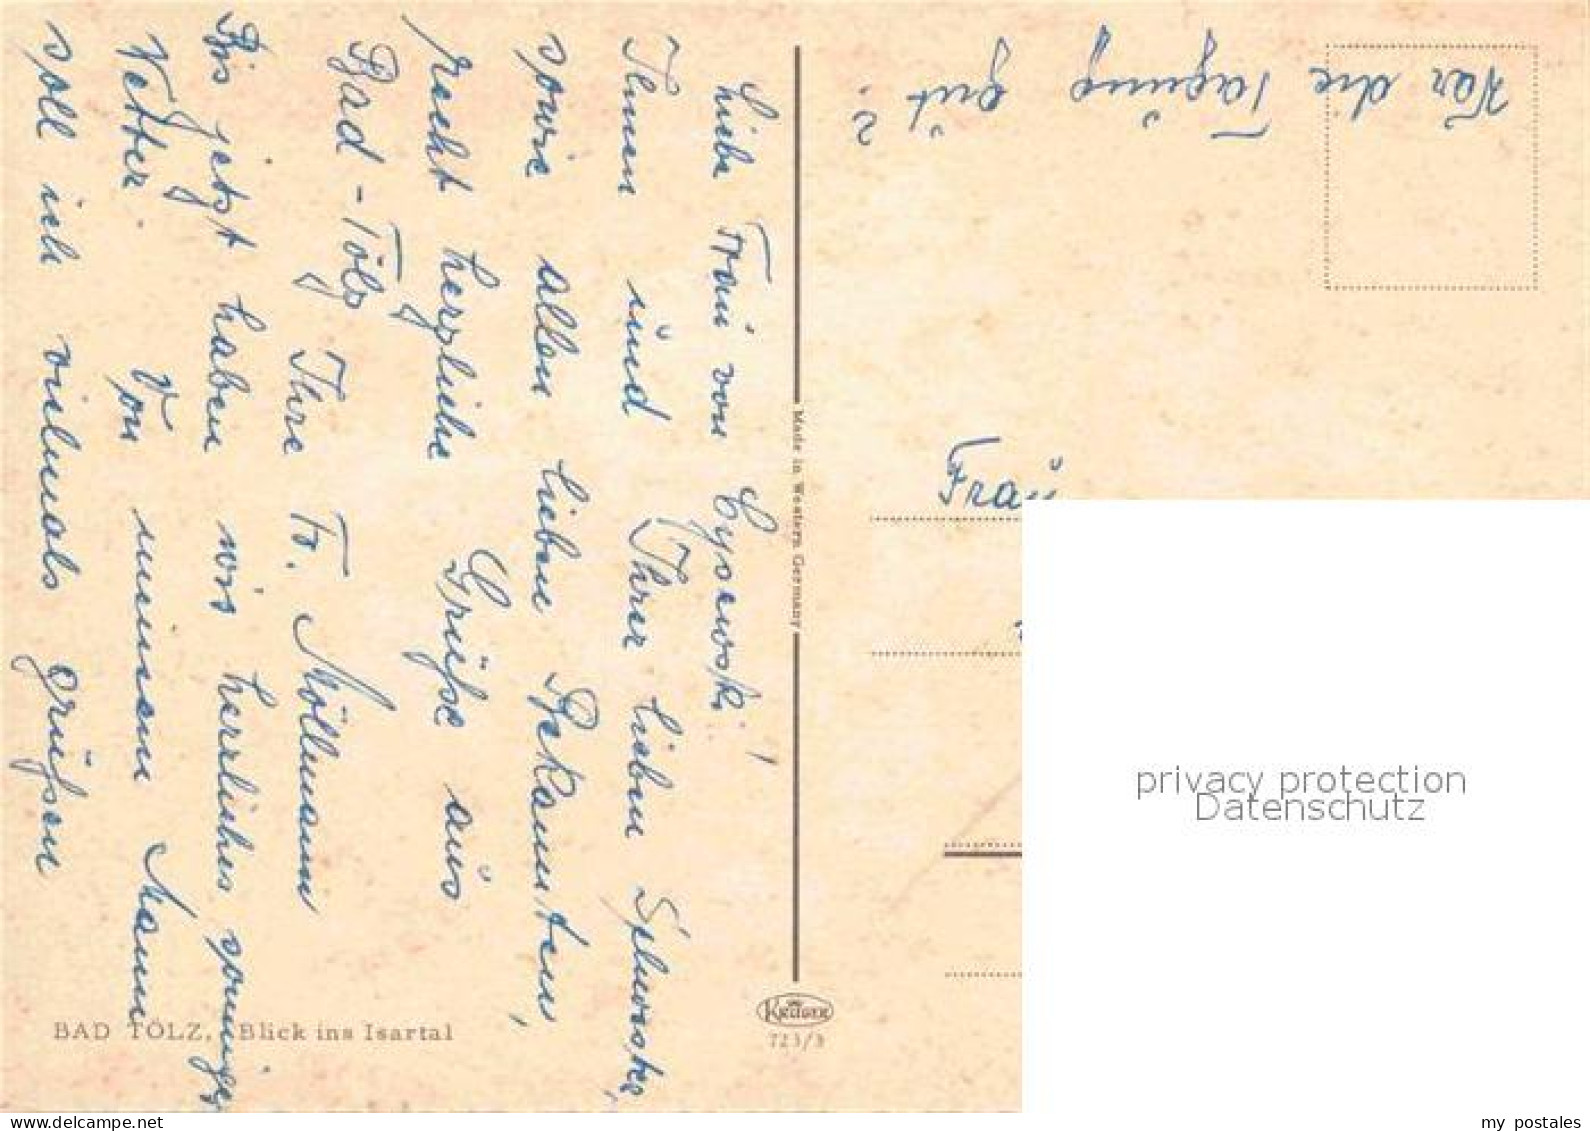 Liebe Frau von Cysewski!
Ihnen und Ihrer lieben Schwester,
sowie allen lieben Bekannten,
recht herzliche Grüße aus
Bad-Tölz Ihre Fr. Möllmann
Bis jetzt haben wir herrliches sonniges
Wetter. Von meinem Mann
soll ich vielmals grüßen
War die Tagung gut?
Frau
Made in Western Germany
KRÜGER
723/3
BAD TÖLZ, Blick ins Isartal
privacy protection
Datenschutz
my postales